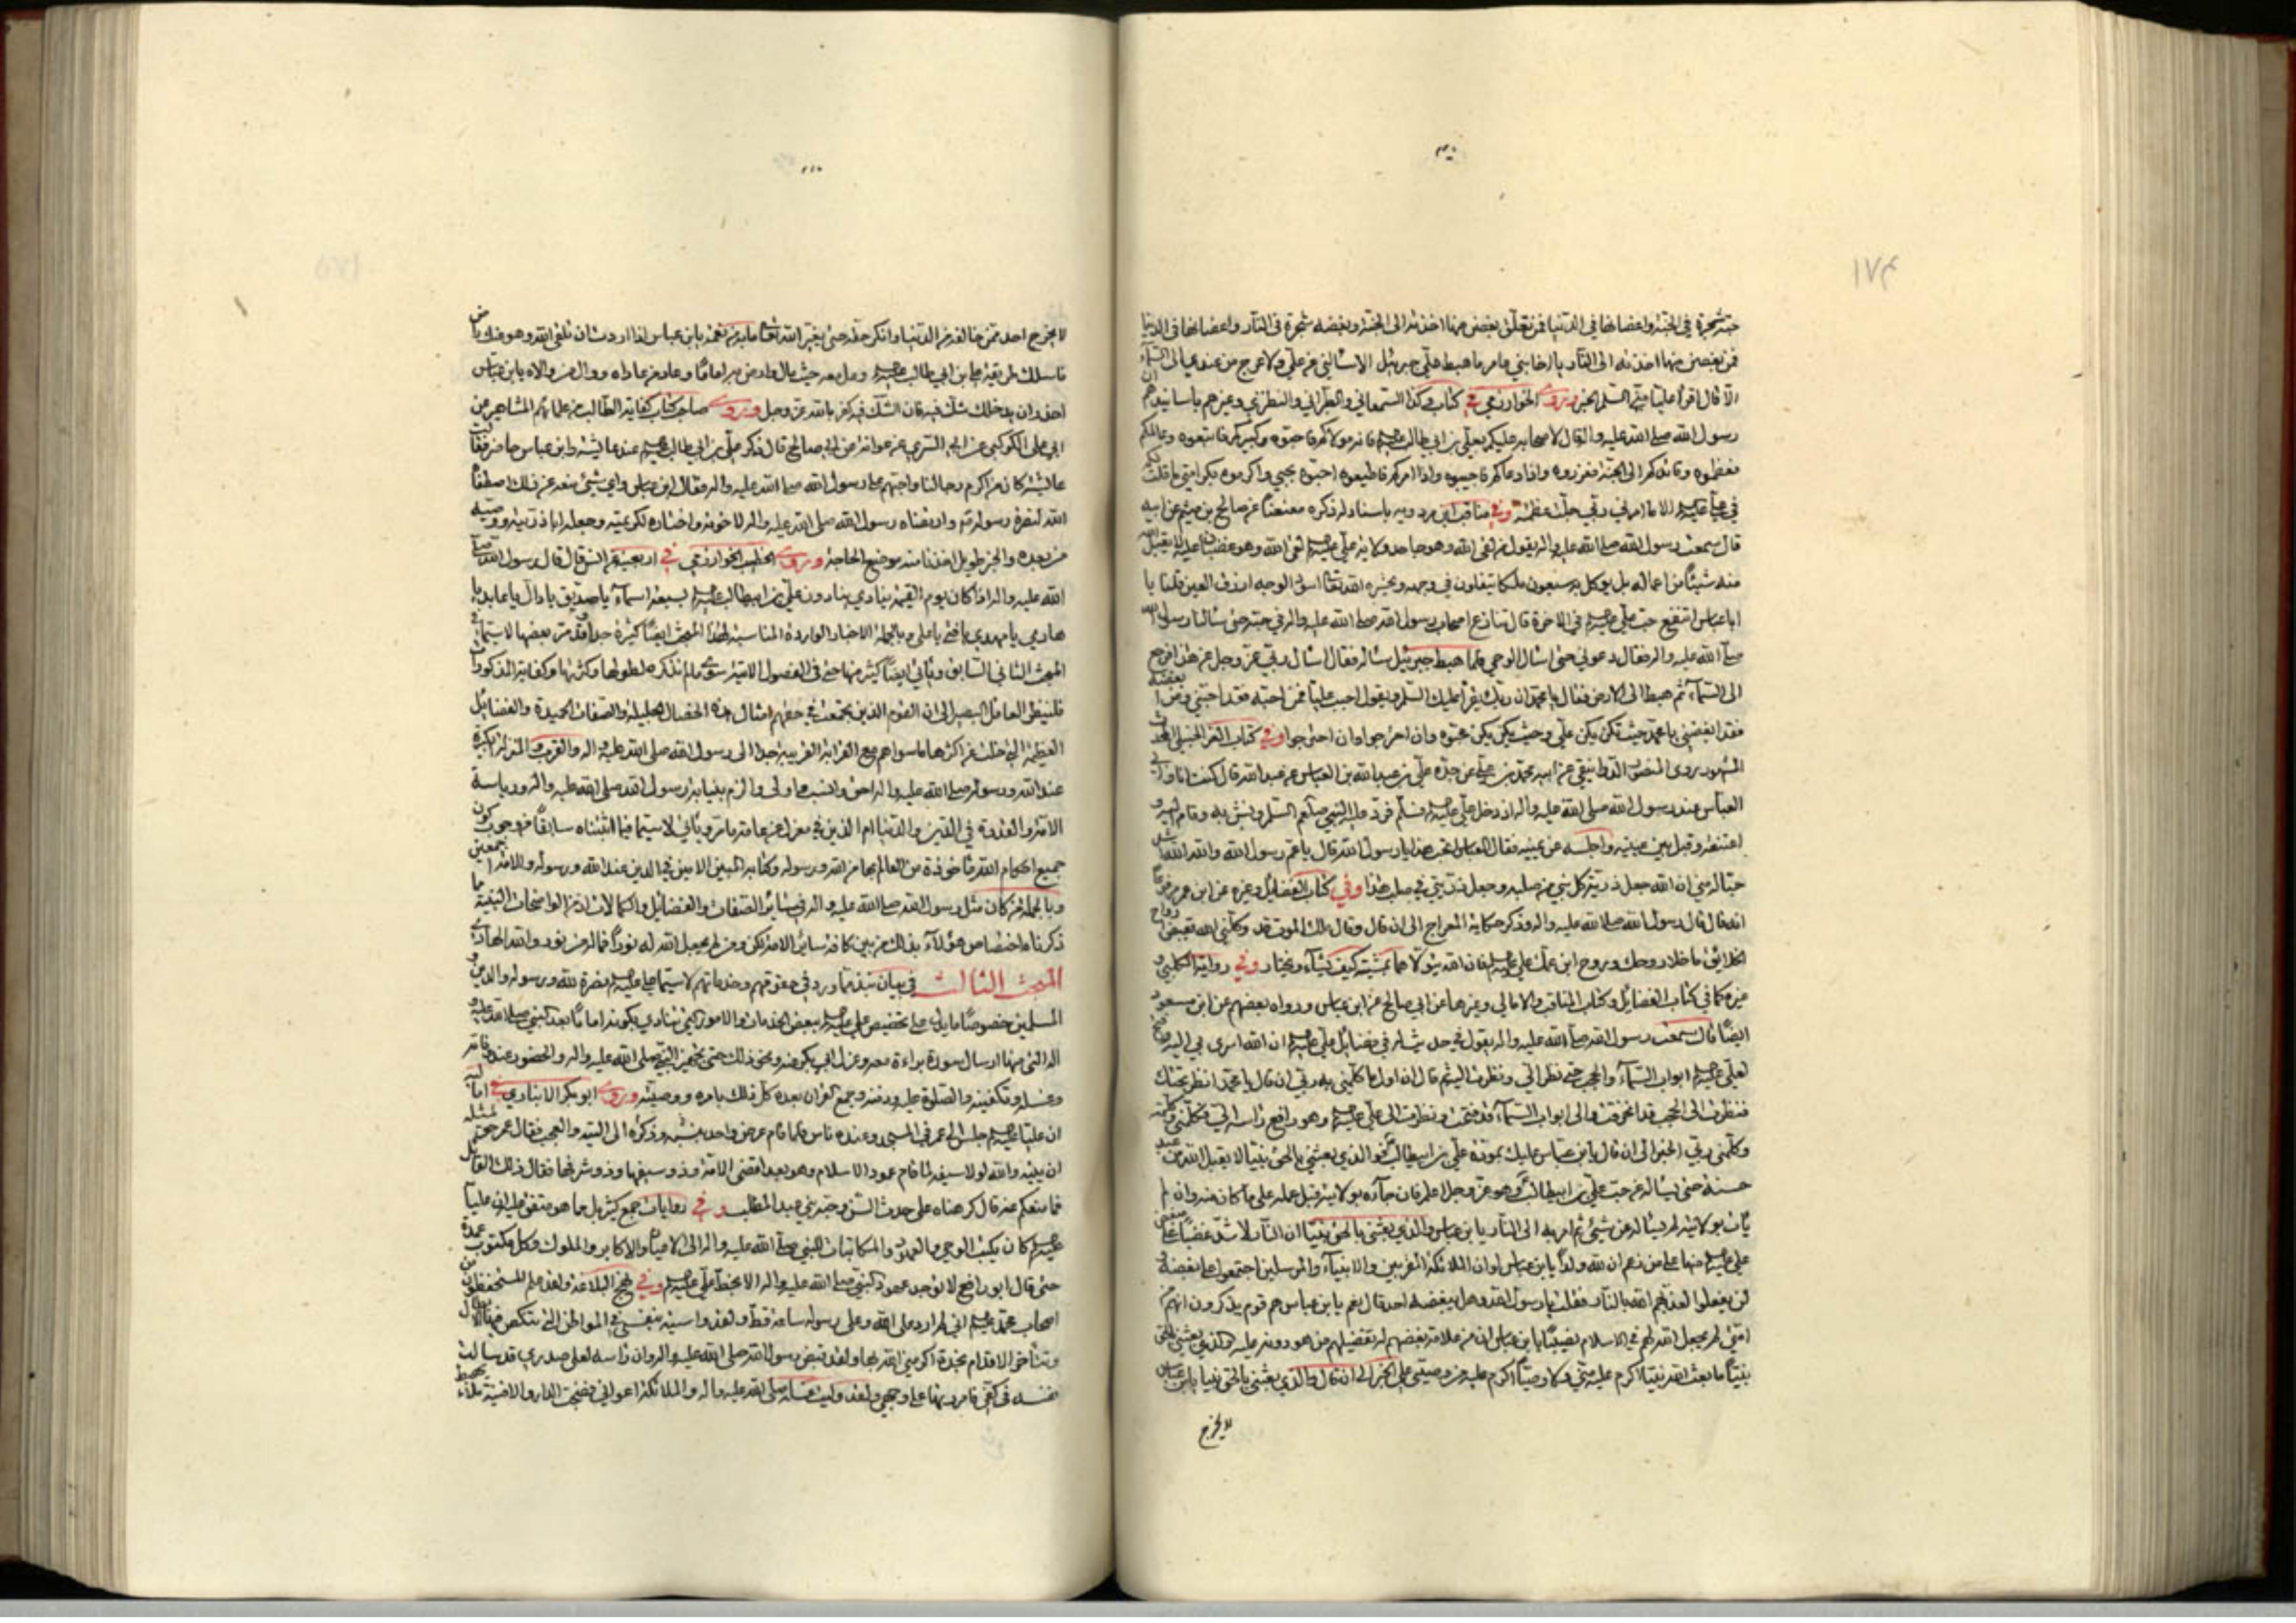 ١٧٤
حبّه شجرة في الجنة واغصانها في الدنيا فمن تعلّق بغصن منها اخذته الى الجنة وبغضه شجرة في النار واغصانها في الدنيا
فمن بغصن منها اخذته الى النار ما هبط عليّ جبرئيل الا سالني عن عليّ ولا عرج من عندي الى السماء
الا قال اقرأ عليّا منّي السلم الخبر وروى الخوارزمي في كتابه وكذا السمعاني والطبراني والنطنزي وغيرهم باسانيدهم ان
رسول الله صلى الله عليه واله قال لاصحابه عليكم بعليّ بن ابي طالب فانه مولاكم فاحبّوه وكبيركم فاتبعوه وعالمكم
فعظموه وقائدكم الى الجنة فعزروه واذا دعاكم فاجيبوه واذا امركم فاطيعوه احبّوه بحبي واكرموه بكرامتي ما قلت لكم
في عليّ الا ما امرني ربّي جلّت عظمته وفي مناقب ابن مردويه باسناد له ذكره معنعنا عن صالح بن ميثم عن ابيه
قال سمعت رسول الله صلى الله عليه واله يقول من لقى الله وهو جاحد ولاية عليّ لقى الله وهو غضبان عليه لا يقبل الله
منه شيئا من اعماله بل يوكل به سبعون ملكا يتفلون في وجهه ويحشره الله تعالى اسود الوجه ازرق العين قلنا يا
ابا عباس اتنفع حب عليّ في الاخرة قال تنازع اصحاب رسول الله صلى الله عليه واله في حبه حتى سالنا رسول الله
صلى الله عليه واله فقال دعوني حتى اسال الوحي فلما هبط جبرئيل ساله فقال اسال ربّي عز وجل عن هذا فرجع
الى السماء ثم هبط الى الارض فقال يا محمد ان ربك يقرأ عليك السلم ويقول احب عليا فمن احبه فقد احبني ومن ابغضه
فقد ابغضني يا محمد حيث تكن يكن علي وحيث يكن علي يكن محبوه وان اجترحوا وان اجترحوا وفي كتاب
المشهور يروى المنصور الدوانيقي عن ابيه محمد بن علي عن جده علي بن عبد الله بن العباس عن عبد الله قال كنت انا وابي
العباس عند رسول الله صلى الله عليه واله اذ دخل علي فسلم فرد عليه النبي صلعم السلم وبش به وقام اليه و
اعتنقه وقبل بين عينيه واجلسه عن يمينه فقال العباس اتحب هذا يا رسول الله قال يا عم رسول الله والله الله اشد
حبا له مني ان الله جعل ذرية كل نبي من صلبه وجعل ذريتي في صلب هذا وفي كتاب الفضايل وغيره عن ابن عمر مرفوعا
انه قال قال رسول الله صلى الله عليه واله وذكر حكاية المعراج الى ان قال وقال ملك الموت قد وكلني الله بقبض ارواح
الخلائق ما خلا روحك وروح ابن عمك علي فان الله يتولاهما بمشيته كيف يشاء ويختار وفي رواية الكليني و
غيره كما في كتاب الفضايل وكتاب المناقب والامالي وغيرها عن ابي صالح عن ابن عباس ورواه بعضهم عن ابن مسعود
ايضا قال سمعت رسول الله صلى الله عليه واله يقول في حديث له في فضائل علي ان الله اسرى بي اليه وفتح
لعلي ابواب السماء والحجب حتى نظر الي ونظرت اليه ثم قال ان اول ما كلمني به ربي ان قال يا محمد انظر تحتك
فنظرت الى الحجب قد انخرقت والى ابواب السماء قد فتحت ونظرت الى علي وهو رافع راسه الي فكلمني وكلمته
وكلمني ربي الخبر الى ان قال يا ابن عباس عليك بمودة علي بن ابيطالب فو الذي بعثني بالحق نبيا لا يقبل الله من عبد
حسنة حتى يساله عن حب علي بن ابيطالب وهو عز وجل اعلم فان جاءه بولايته قبل عمله على ما كان منه وان لم
يات بولايته لم يساله عن شيء ثم امر به الى النار يا ابن عباس والذي بعثني بالحق نبيا ان النار لاشد غضبا على مبغض
علي منها على من زعم ان لله ولدا يا ابن عباس لو ان الملائكة المقربين والانبياء والمرسلين اجتمعوا على بغضه و
لن يفعلوا لعذبهم الله بالنار فقلت يا رسول الله وهل يبغضه احد قال نعم يا ابن عباس هم قوم يذكرون انهم من
امتي لم يجعل الله لهم في الاسلام نصيبا يا ابن عباس ان من علامة بغضهم له تفضيلهم من هو دونه عليه والذي بعثني بالحق
نبيا ما بعث الله نبيا اكرم عليه مني ولا وصيا اكرم عليه من وصيي علي الخبر الى ان قال والذي بعثني بالحق نبيا يا ابن عباس
لا يخرج
لا يخرج احد ممن خالفه من الدنيا وانكر حقه حتى يغير الله تعالى ما به من نعمة يا ابن عباس اذا اردت ان تلقى الله وهو عنك راض
فاسلك طريقة علي بن ابي طالب ومل معه حيث مال وارض به اماما وعاد من عاداه ووال من والاه يا ابن عباس
احذر ان يدخلك شك فيه فان الشك فيه كفر بالله عز وجل وروى صاحب كتاب كفاية الطالب من علمائهم المشاهير عن
ابي علي الكوكبي عن ابي السري عن عوانة عن ابي صالح قال ذكر علي بن ابي طالب عند عائشة وابن عباس حاضر فقالت
عائشة كان من اكرم رجالنا واحبهم على رسول الله صلى الله عليه واله فقال ابن عباس واي شيء منعه عن ذلك اصطفاه
الله لنصرة رسوله وارتضاه رسول الله صلى الله عليه واله لاخوته واختاره لكريمته وجعله ابا ذريته ووصيه
من بعده والخبر طويل اخذنا منه موضع الحاجة وروى الخطيب الخوارزمي في اربعينه عن انس قال قال رسول الله صلى
الله عليه واله اذا كان يوم القيمة ينادي ينادون علي بن ابيطالب بسبعة اسماء يا صديق يا دال يا عابد يا
هادي يا مهدي يا فتى يا علي وبالجملة الاخبار الواردة المناسبة لهذا المبحث ايضا كثيرة جدا وقد مر بعضها لا سيما في
المبحث الثاني السابق وياتي ايضا كثير منها حتى في الفصول الاتية سوى ما لم نذكره لطولها وكثرتها وكفاية المذكورات
فلينظر العاقل البصير الى ان القوم الذين اجتمعت في حقهم امثال هذه الخصال الجليلة والصفات الحميدة والفضايل
العظيمة التي خلت عن اكثرها ما سواهم مع القرابة القريبة جدا الى رسول الله صلى الله عليه واله والقرب والمنزلة الكبيرة
عند الله ورسوله صلى الله عليه واله احق وانسب واولى والزم بنيابة رسول الله صلى الله عليه واله ورياسة
الامة والقدوة في الدين والدنيا ام الذين في معزل عن عامة ما مر وياتي لا سيما فيما اثبتناه سابقا من وجوب كون
جميع احكام الله ماخوذة من العالم بها من الله ورسوله وكتابه المبين الامين في الدين عند الله ورسوله والامة اجمعين
وبالجملة من كان مثل رسول الله صلى الله عليه واله في سائر الصفات والفضايل والكمالات
ذكرنا ه اختصاص هؤلاء بذلك من بين كافة سائر الامة لكن ومن لم يجعل الله له نورا فما له من نور والله الهادي
المبحث الثالث في بيان نبذ مما ورد في حقوقهم وخدماتهم لا سيما علي في نصرة الله ورسوله والدين و
المسلمين خصوصا ما يدل على تخصيص علي ببعض الخدمات والامور التي تنادي بكونه اماما بعد النبي صلى الله عليه و
اله التي منها ارسال سورة براءة معه وعزل ابي بكر عنه ونحو ذلك حتى تجهيز النبي صلى الله عليه واله والحضور عند وفاته
وغسله وتكفينه والصلوة عليه ودفنه وجمع القران بعده كل ذلك بامره ووصيته وروى ابو بكر الانباري في اماليه
ان عليا جلس الى عمر في المسجد وعنده ناس فلما قام عرض واحد بذكره الى التيه والعجب فقال عمر حق لمثله
ان يتيه والله لولا سيفه لما قام عمود الاسلام وهو بعد اقضى الامة وذو سبقها وذو شرفها فقال ذلك القائل
فما منعكم عنه قال كرهناه على حدث السن وحبه بني عبد المطلب وفي روايات جمع كثير بل مما هو متفق عليه ان عليا
كان يكتب الوحي والعهود والمكاتبات للنبي صلى الله عليه واله الى الاكابر والملوك وكل مكتوب عمدة
حتى قال ابو رافع لا توجد عهود النبي صلى الله عليه واله الا بخط علي وفي نهج البلاغة ولقد علم المستحفظون من
اصحاب محمد اني لم ارد على الله وعلى رسوله ساعة قط ولقد واسيته بنفسي في المواطن التي تنكص فيها الابطال
وتتاخر الاقدام نجدة اكرمني الله بها ولقد قبض رسول الله صلى الله عليه واله وان راسه لعلى صدري قد سالت
نفسه في كفي فامررتها على وجهي ولقد وليت غسله صلى الله عليه واله والملائكة اعواني فضجت الدار والافنية ملاء يهبط